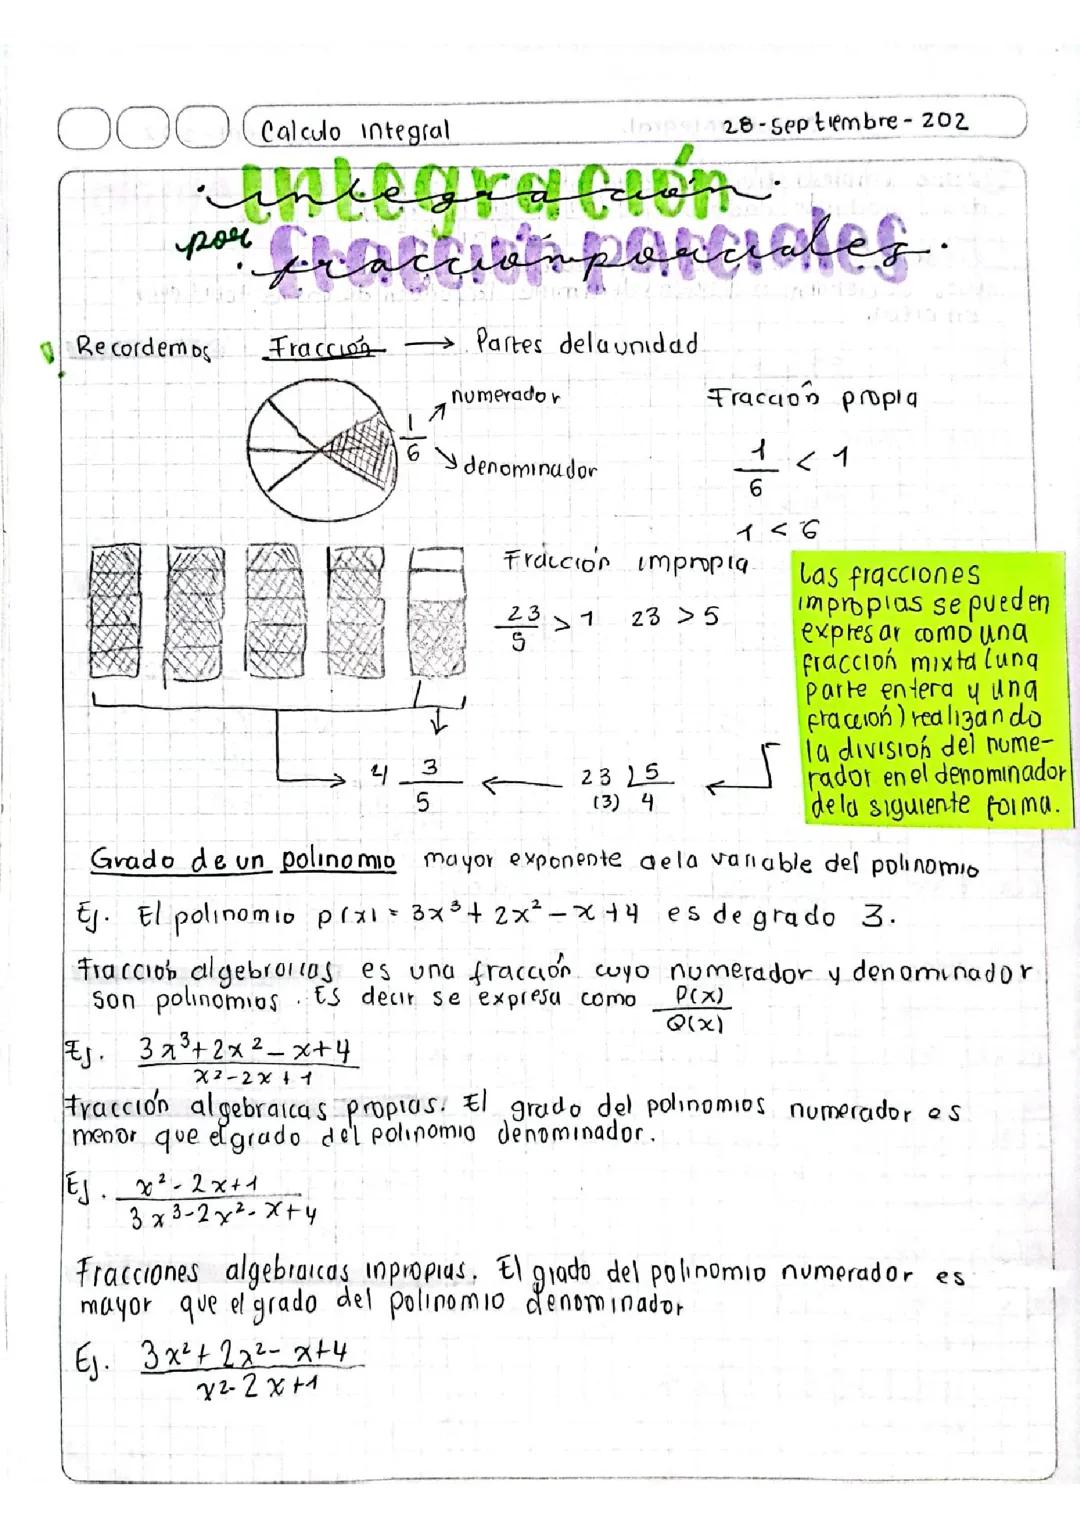 Calculo integral
28-Septiembre-202
integración
por fracción parciales.
Recordemos Fracción → Partes de la unidad
numerador
1/6
denominador
Fracción propia
1/6 < 1
1 < 6
Fracción impropia
23/5 > 1 23 > 5
4 3/5 ← 23 5
(3) 4
Las fracciones
impropias se pueden
expresar como una
fracción mixta (una
parte entera y una
fracción) realizando
la división del nume-
rador en el denominador
de la siguiente forma.
Grado de un polinomio mayor exponente de la variable del polinomio
Ej. El polinomio p(x) = 3x³ + 2x² - x + 4 es de grado 3.
Fracción algebraicas es una fracción cuyo numerador y denominador
son polinomios. Es decir se expresa como P(x)/Q(x)
Ej. 3x³+2x²-x+4
x²-2x+1
Fracción algebraicas propias. El grado del polinomios numerador es
menor que el grado del polinomio denominador.
Ej. x²-2x+1
3x³-2x²-x+4
Fracciones algebraicas inpropias. El grado del polinomio numerador es
mayor que el grado del polinomio denominador
Ej. 3x²+2x²-x+4
x²-2x+1